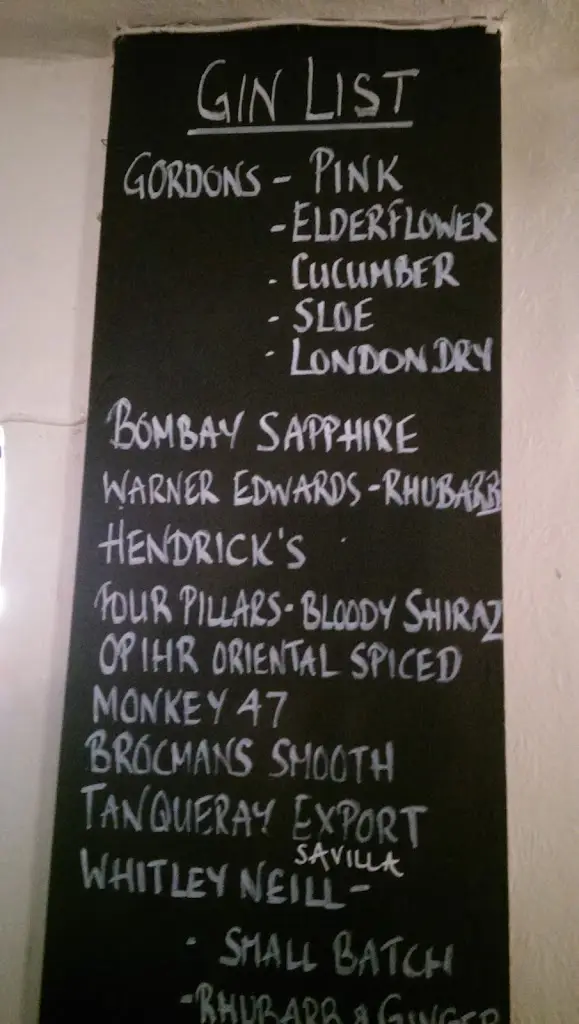 GIN LIST
GORDONS - PINK
- ELDERFLOWER
- CUCUMBER
- SLOE
- LONDON DRY
BOMBAY SAPPHIRE
WARNER EDWARDS - RHUBARB
HENDRICK'S
FOUR PILLARS - BLOODY SHIRAZ
OPIHR ORIENTAL SPICED
MONKEY 47
BROCMANS SMOOTH
TANQUERAY EXPORT
SAVILLA
WHITLEY NEILL -
- SMALL BATCH
- RHUBARB & GINGER